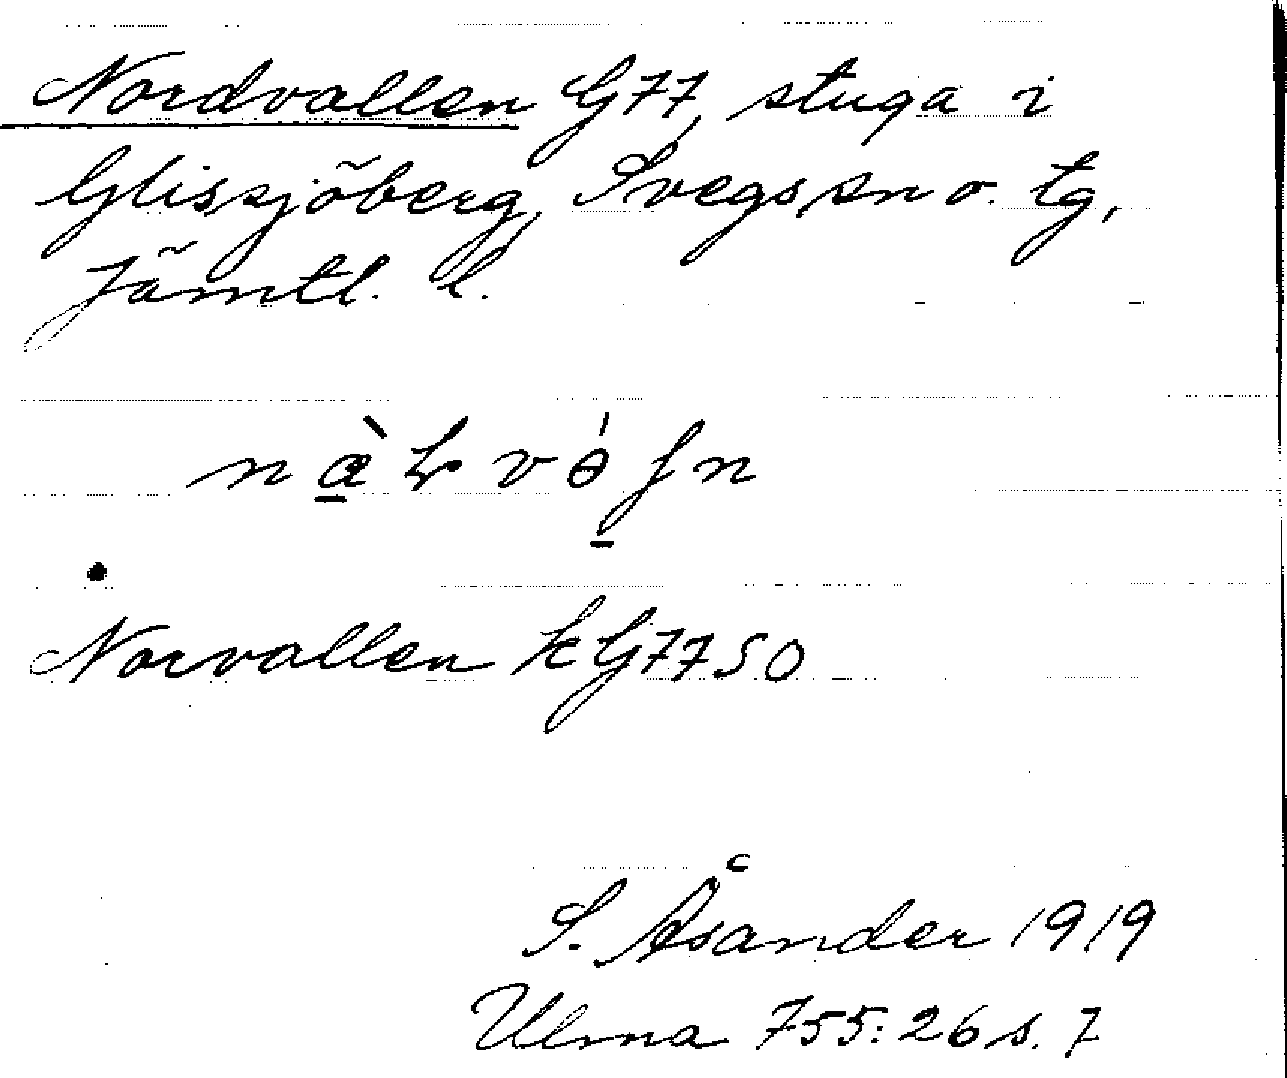 Nordvallen G77, stuga i
Glissjöberg, Svegs sn o. tg,
Jämtl. l.
Norvallen kG7750
S. Åsander 1919
Ulma 755:26 s. 7